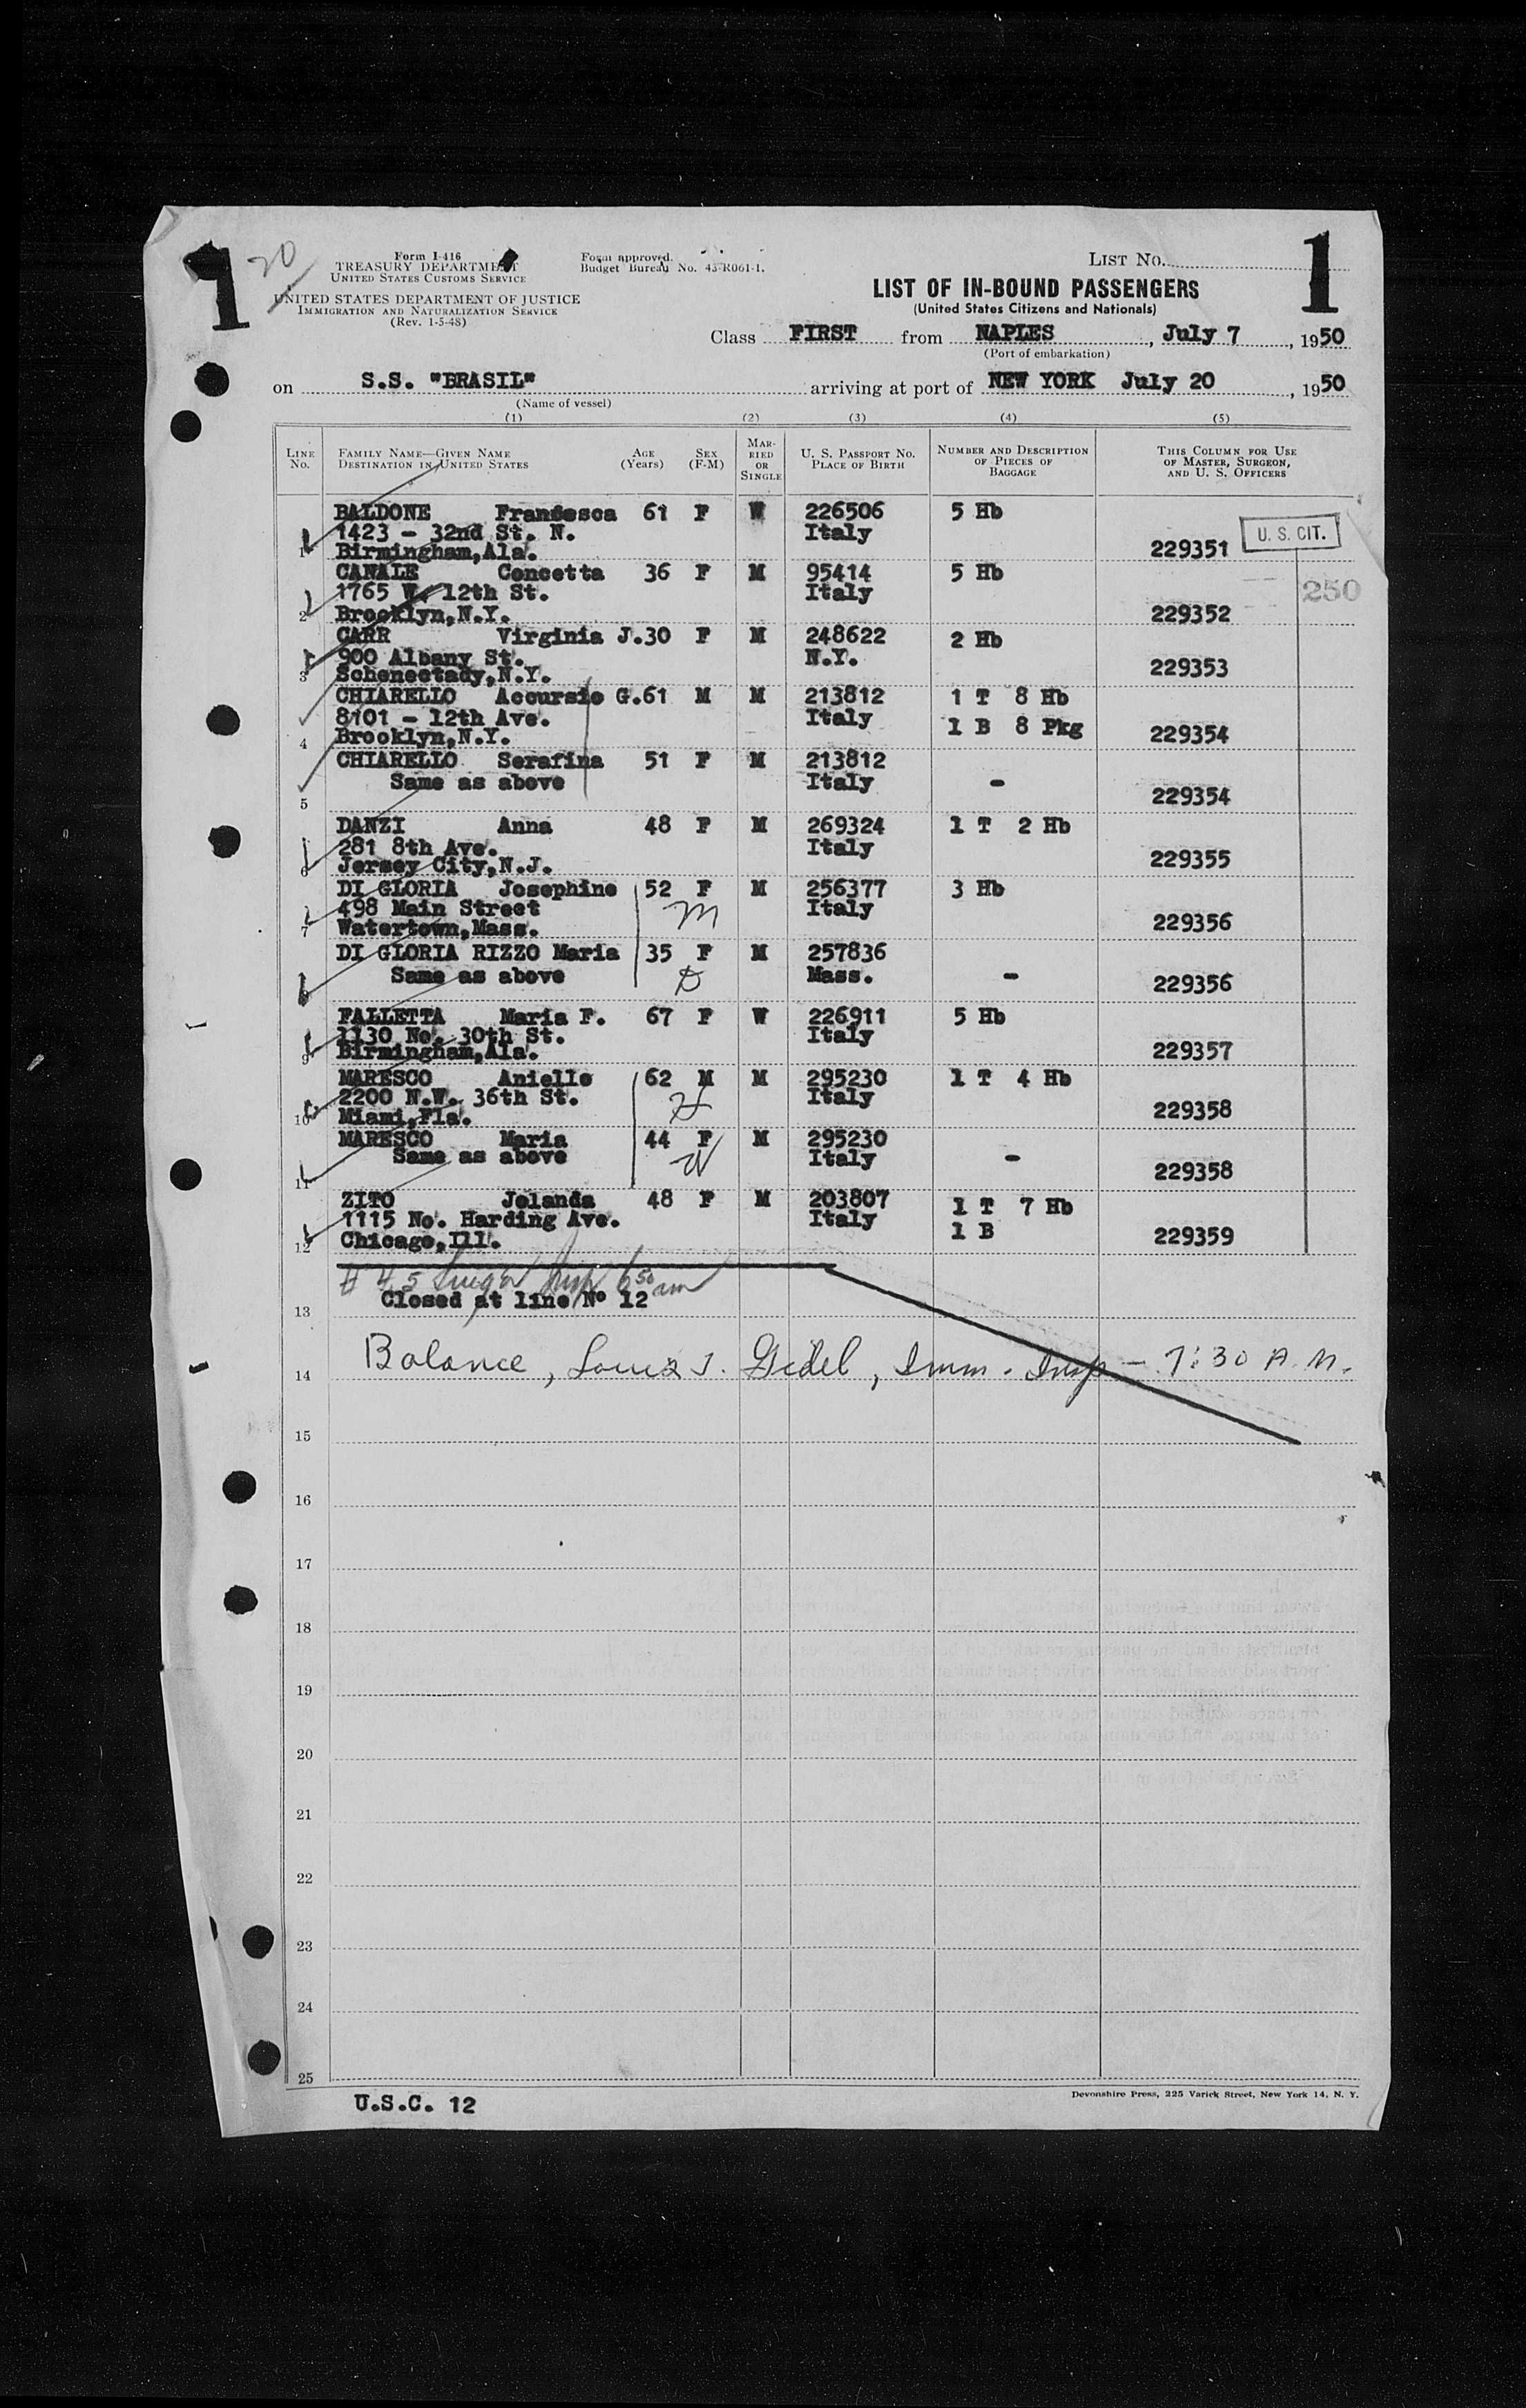 1 20 Form I-416 Form approved. List No. 1
TREASURY DEPARTMENT Budget Bureau No. 43-R061-1.
United States Customs Service
UNITED STATES DEPARTMENT OF JUSTICE LIST OF IN-BOUND PASSENGERS
Immigration and Naturalization Service (United States Citizens and Nationals)
(Rev. 1-5-48)
Class FIRST from NAPLES, July 7, 1950
(Port of embarkation)
on S.S. "BRASIL" arriving at port of NEW YORK July 20, 1950
(Name of vessel)
(1) (2) (3) (4) (5)
Line No. Family Name—Given Name Destination in United States Age (Years) Sex (F-M) Married or Single U. S. Passport No. Place of Birth Number and Description of Pieces of Baggage This Column for Use of Master, Surgeon, and U. S. Officers
BALDONE Francesca 61 F W 226506 5 Hb
1423 - 32nd St. N. Italy U. S. CIT.
1 Birmingham,Ala. 229351
CANALE Concetta 36 F M 95414 5 Hb
1765 W. 12th St. Italy 250
2 Brooklyn,N.Y. 229352
CARR Virginia J. 30 F M 248622 2 Hb
900 Albany St. N.Y.
3 Schenectady,N.Y. 229353
CHIARELLO Accursio G. 61 M M 213812 1 T 8 Hb
8101 - 12th Ave. Italy 1 B 8 Pkg
4 Brooklyn,N.Y. 229354
CHIARELLO Serafina 51 F M 213812
Same as above Italy -
5 229354
DANZI Anna 48 F M 269324 1 T 2 Hb
281 8th Ave. Italy
6 Jersey City,N.J. 229355
DI GLORIA Josephine 52 F M 256377 3 Hb
498 Main Street M Italy
7 Watertown,Mass. 229356
DI GLORIA RIZZO Maria 35 F M 257836
Same as above D Mass. -
8 229356
FALLETTA Maria F. 67 F W 226911 5 Hb
1130 No. 30th St. Italy
9 Birmingham,Ala. 229357
MARESCO Aniello 62 M M 295230 1 T 4 Hb
2200 N.W. 36th St. H Italy
10 Miami,Fla. 229358
MARESCO Maria 44 F M 295230
Same as above W Italy -
11 229358
ZITO Jolanda 48 F M 203807 1 T 7 Hb
1115 No. Harding Ave. Italy 1 B
12 Chicago,Ill. 229359
# 4, 5 Insp 6 50 am
13 Closed at line No 12
14 Balance, Louis J. Gidel, Imm. Insp - 7:30 A.M.
15
16
17
18
19
20
21
22
23
24
25
U.S.C. 12 Devonshire Press, 225 Varick Street, New York 14, N. Y.